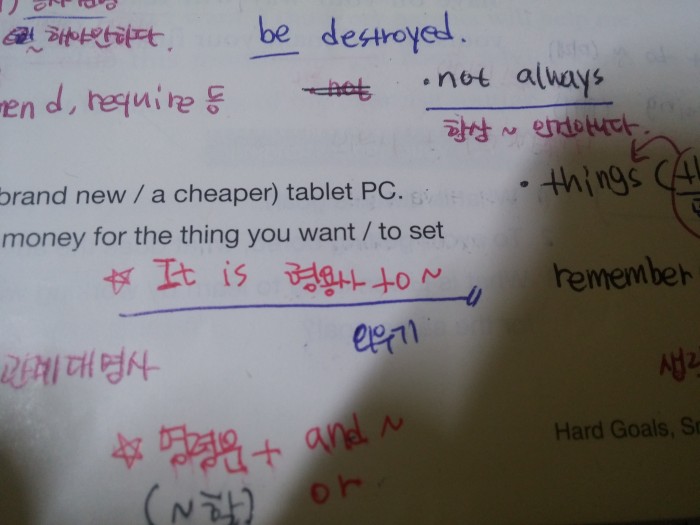 ~ 해야한다.
be destroyed.
mend, require 등
not
· not always
항상 ~ 인건아니다.
brand new / a cheaper) tablet PC.
· things (th
money for the thing you want / to set
☆ It is 형용사 to ~
remember
외우기
관계대명사
생각
Hard Goals, S
☆ 명령문 + and ~
or